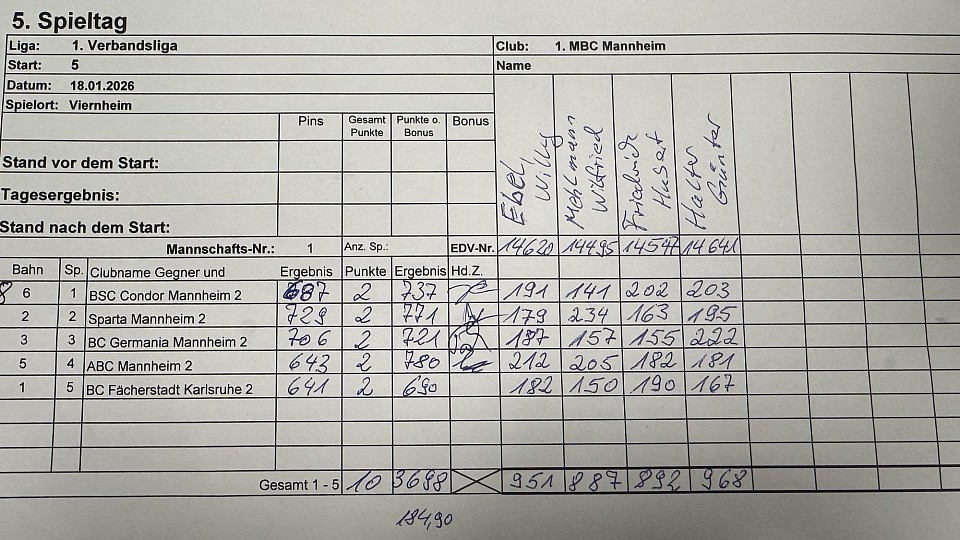 5. Spieltag
Liga: 1. Verbandsliga Club: 1. MBC Mannheim
Start: 5 Name
Datum: 18.01.2026
Spielort: Viernheim
Pins Gesamt Punkte Punkte o. Bonus Bonus Ebel, Willy Mehlmann Wilfried Friedrich Hubert Halter Günter
Stand vor dem Start:
Tagesergebnis:
Stand nach dem Start:
Mannschafts-Nr.: 1 Anz. Sp.: EDV-Nr. 14620 14495 14547 14641
Bahn Sp. Clubname Gegner und Ergebnis Punkte Ergebnis Hd.Z.
8 6 1 BSC Condor Mannheim 2 687 2 737 191 141 202 203
2 2 Sparta Mannheim 2 729 2 771 179 234 163 195
3 3 BC Germania Mannheim 2 706 2 721 187 157 155 222
5 4 ABC Mannheim 2 643 2 780 212 205 182 181
1 5 BC Fächerstadt Karlsruhe 2 641 2 690 182 150 190 167
Gesamt 1 - 5 10 3698 951 887 892 968
184,90